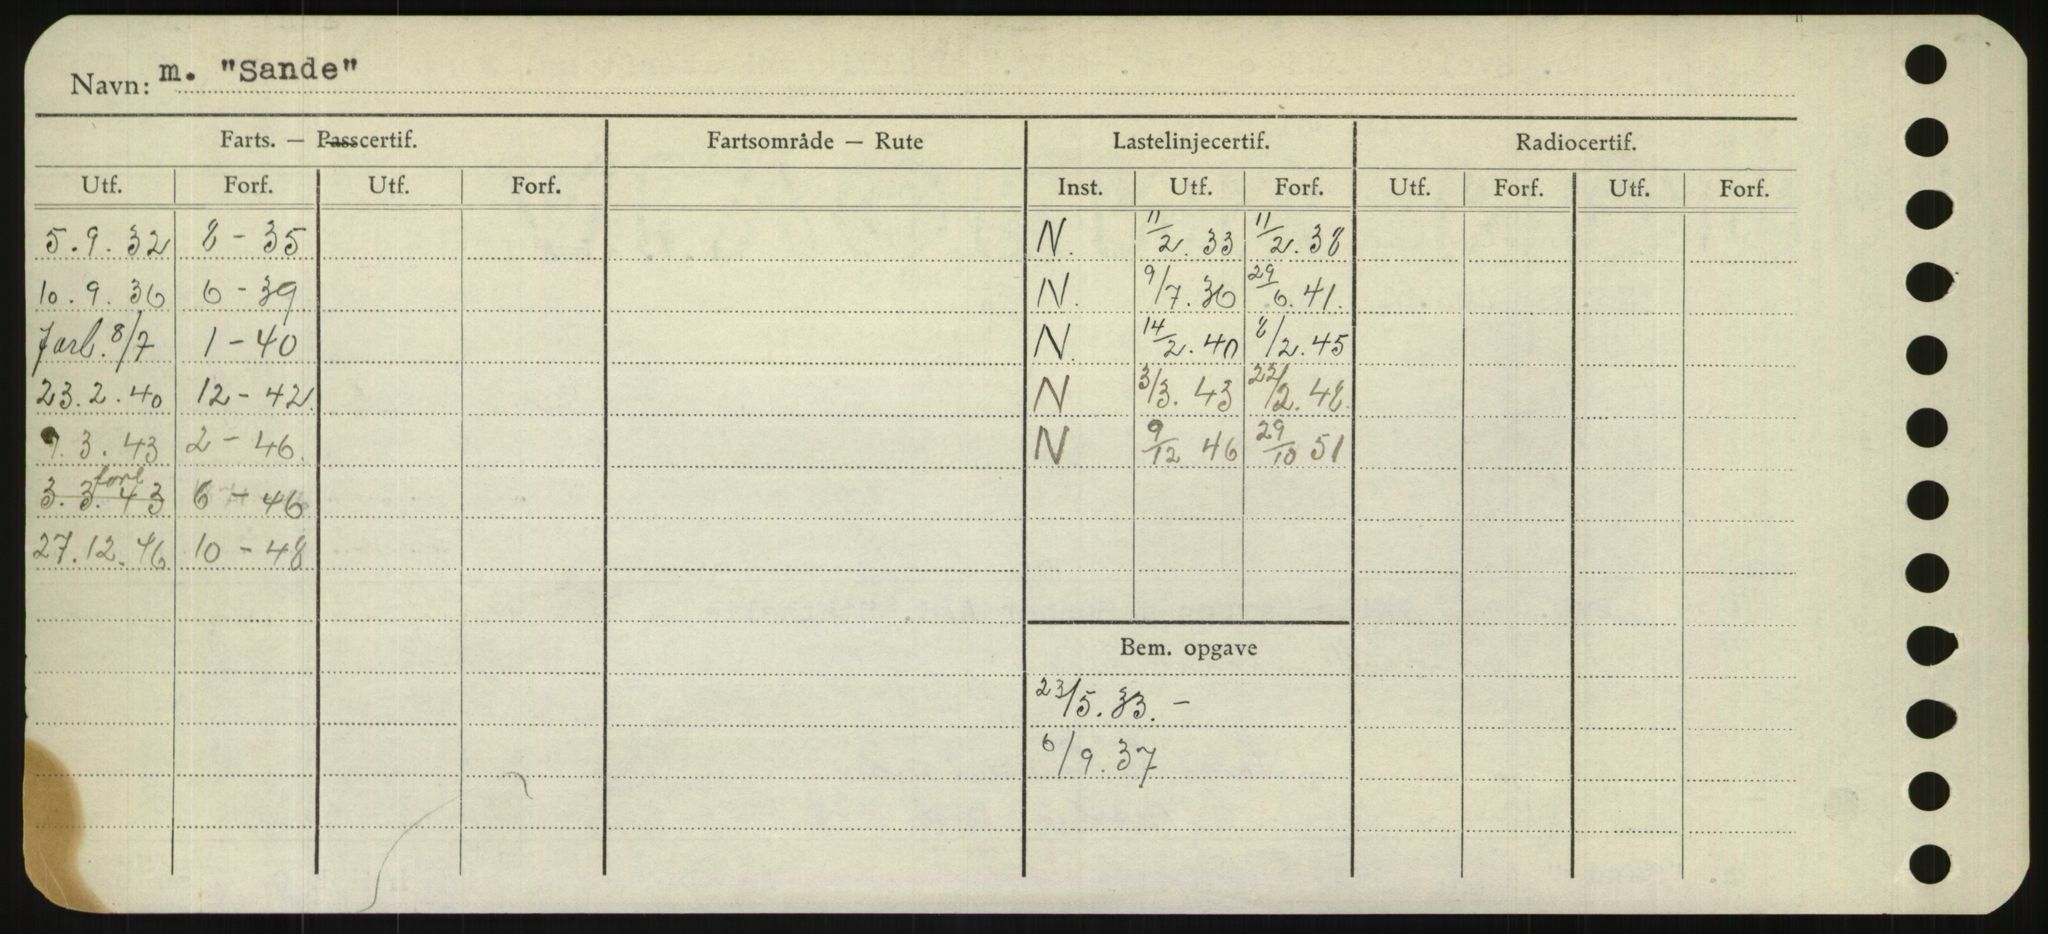 Navn: m. "Sande"
Farts. — Passcertif. Fartsområde — Rute Lastelinjecertif. Radiocertif.
Utf. Forf. Utf. Forf. Inst. Utf. Forf. Utf. Forf. Utf. Forf.
5.9.32 8 - 35 N. 11/2.33 11/2.38
10.9.36 6 - 39 N. 9/7.36 29/6.41.
forl. 8/7 1 - 40 N. 14/2.40 8/2.45
23.2.40 12 - 42. N 3/3.43 22/2.48.
9.3.43 2 - 46. N 9/12 46 29/10 51
forl
3.3.43 6 - 46
27.12.46 10 - 48
Bem. opgave
23/5.33. -
6/9.37